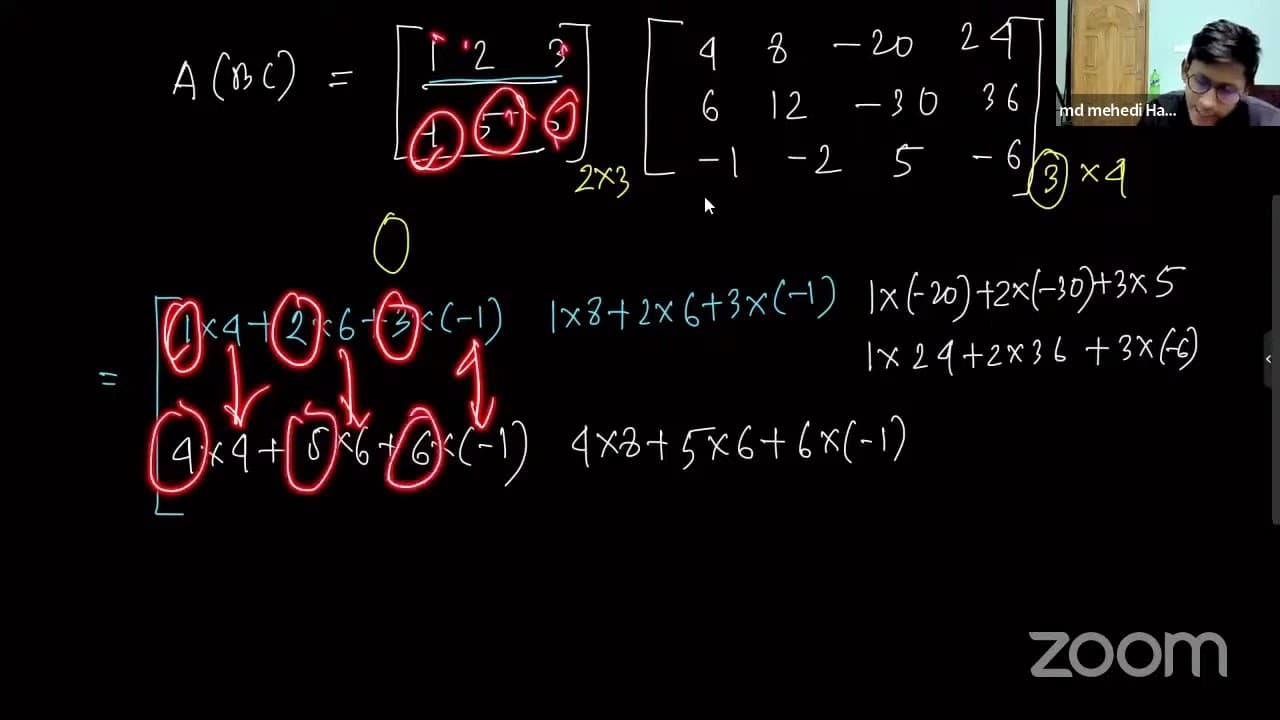 A (BC) = 1 2 3 4 8 -20 24
4 5 6 6 12 -30 36
-1 -2 5 -6
2×3 3 ×4
md mehedi Ha...
1×4+2×6+3×(-1) 1×8+2×6+3×(-1) 1×(-20)+2×(-30)+3×5
1×24+2×36 +3×(-6)
=
4×4+5×6+6×(-1) 4×8+5×6+6×(-1)
zoom